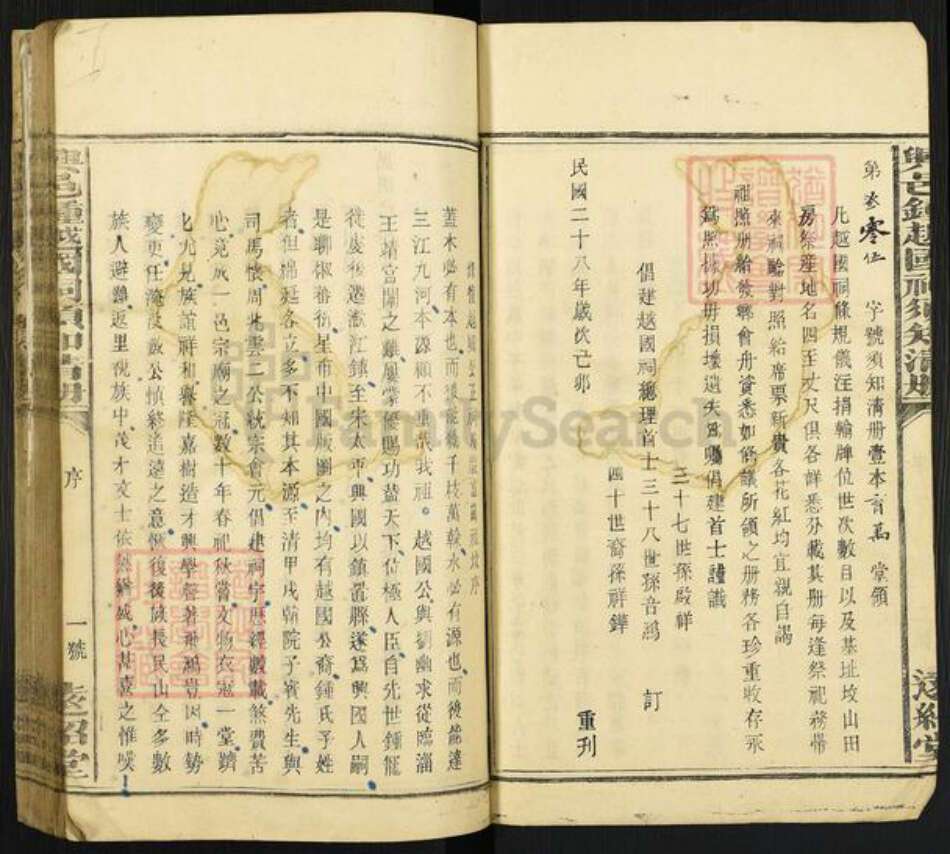 第叁零伍 字號須知清册壹本 育萬 堂領
凡越國祠條規儀注捐輸牌位世次數目以及基址坟山田
房祭産地名四至丈尺俱各詳悉分載其册每逢祭祀務帶
來祠驗對照給席票新貴各花紅均宜親自謁
祖照册給發與會舟資悉如舊議所領之册務各珍重收存永
爲照據切毋損壞遺失爲囑倡建首士謹識
三十七世孫殿祥
倡建越國祠總理首士三十八世孫音鴻 訂
四十世裔孫祥鏵
民國二十八年歲次己卯 重刊
遠紹堂
FamilySearch
蓋木必有本也而後能發千枝萬幹水必有源也而後能達
三江九河本源顧不重哉我祖。越國公與劉幽求從臨淄
王靖宮闈之難鳳蒙優賜功蓋天下位極人臣自先世鍾寵
徙虔後遷瀲江鎮至宋太平興國以鎮置縣遂爲興國人嗣
是聊椒蕃衍星布中國版圖之內均有越國公裔鍾氏子姓
者但綿延各立多不知其本源至清甲戌翰院子賓先生與
司馬懷周兆雲二公統宗會元倡建祠宇歷經數載煞費苦
心竟成一邑宗廟之冠數十年春祀秋嘗文物衣冠一堂躋
匕尤見族誼祥和興隆嘉樹造才興學
變更任淹沒故公慎終追遠之意
族人避難返里視族中茂才文士依然
序
一號
遠紹堂